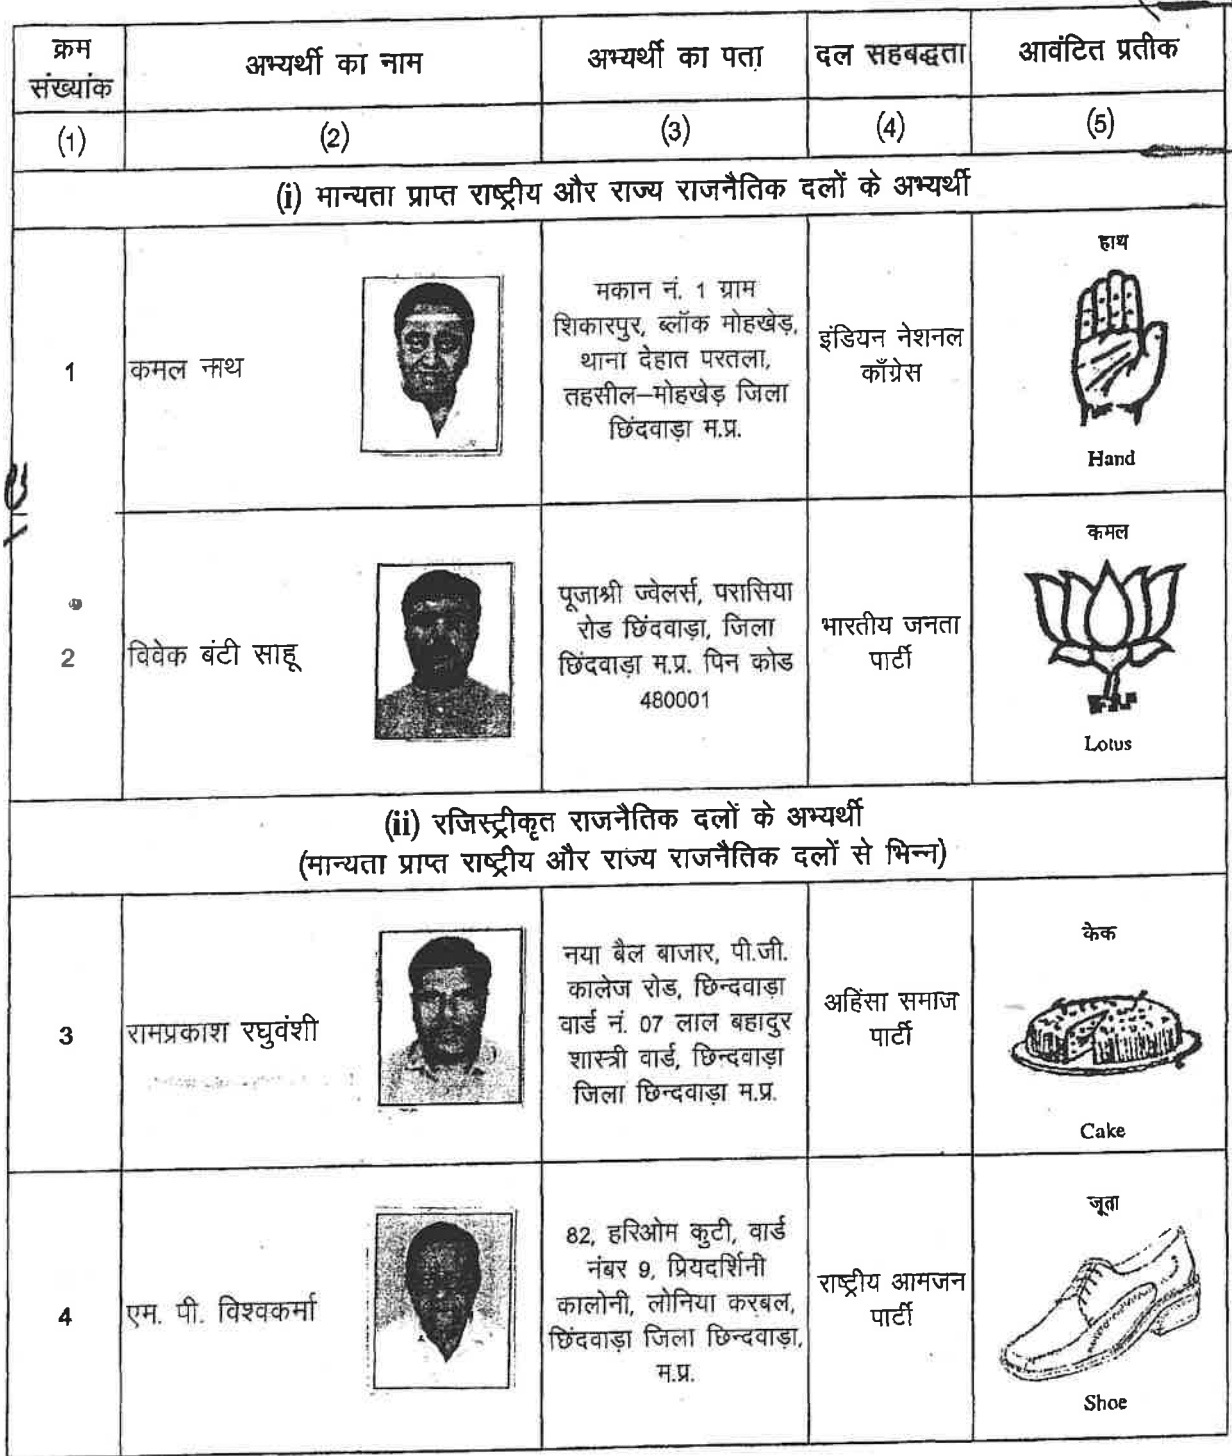 क्रम
संख्यांक
अभ्यर्थी का नाम
अभ्यर्थी का पता
दल सहबद्धता
आवंटित प्रतीक
(1)
(2)
(3)
(4)
(5)
(i) मान्यता प्राप्त राष्ट्रीय और राज्य राजनैतिक दलों के अभ्यर्थी
1
कमल नाथ
मकान नं. 1 ग्राम
शिकारपुर, ब्लॉक मोहखेड़,
थाना देहात परतला,
तहसील–मोहखेड़ जिला
छिंदवाड़ा म.प्र.
इंडियन नेशनल
काँग्रेस
हाथ
Hand
2
विवेक बंटी साहू
पूजाश्री ज्वेलर्स, परासिया
रोड छिंदवाड़ा, जिला
छिंदवाड़ा म.प्र. पिन कोड
480001
भारतीय जनता
पार्टी
कमल
Lotus
(ii) रजिस्ट्रीकृत राजनैतिक दलों के अभ्यर्थी
(मान्यता प्राप्त राष्ट्रीय और राज्य राजनैतिक दलों से भिन्न)
3
रामप्रकाश रघुवंशी
नया बैल बाजार, पी.जी.
कालेज रोड, छिन्दवाड़ा
वार्ड नं. 07 लाल बहादुर
शास्त्री वार्ड, छिन्दवाड़ा
जिला छिन्दवाड़ा म.प्र.
अहिंसा समाज
पार्टी
केक
Cake
4
एम. पी. विश्वकर्मा
82, हरिओम कुटी, वार्ड
नंबर 9, प्रियदर्शिनी
कालोनी, लोनिया करबल,
छिंदवाड़ा जिला छिन्दवाड़ा,
म.प्र.
राष्ट्रीय आमजन
पार्टी
जूता
Shoe